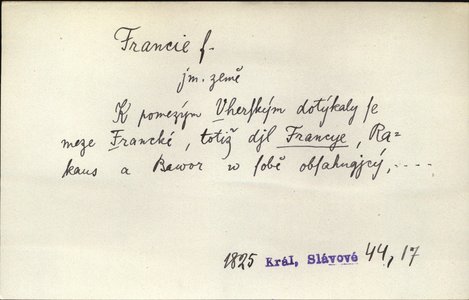 Francie f.
jm. země
K pomezým Vherſkým dotýkaly ſe
meze Francké, totiž djl Francye, Ra-
kaus a Bawor w ſobě obſahugjcý, . . . .
1825 Král, Slávové 44, 17